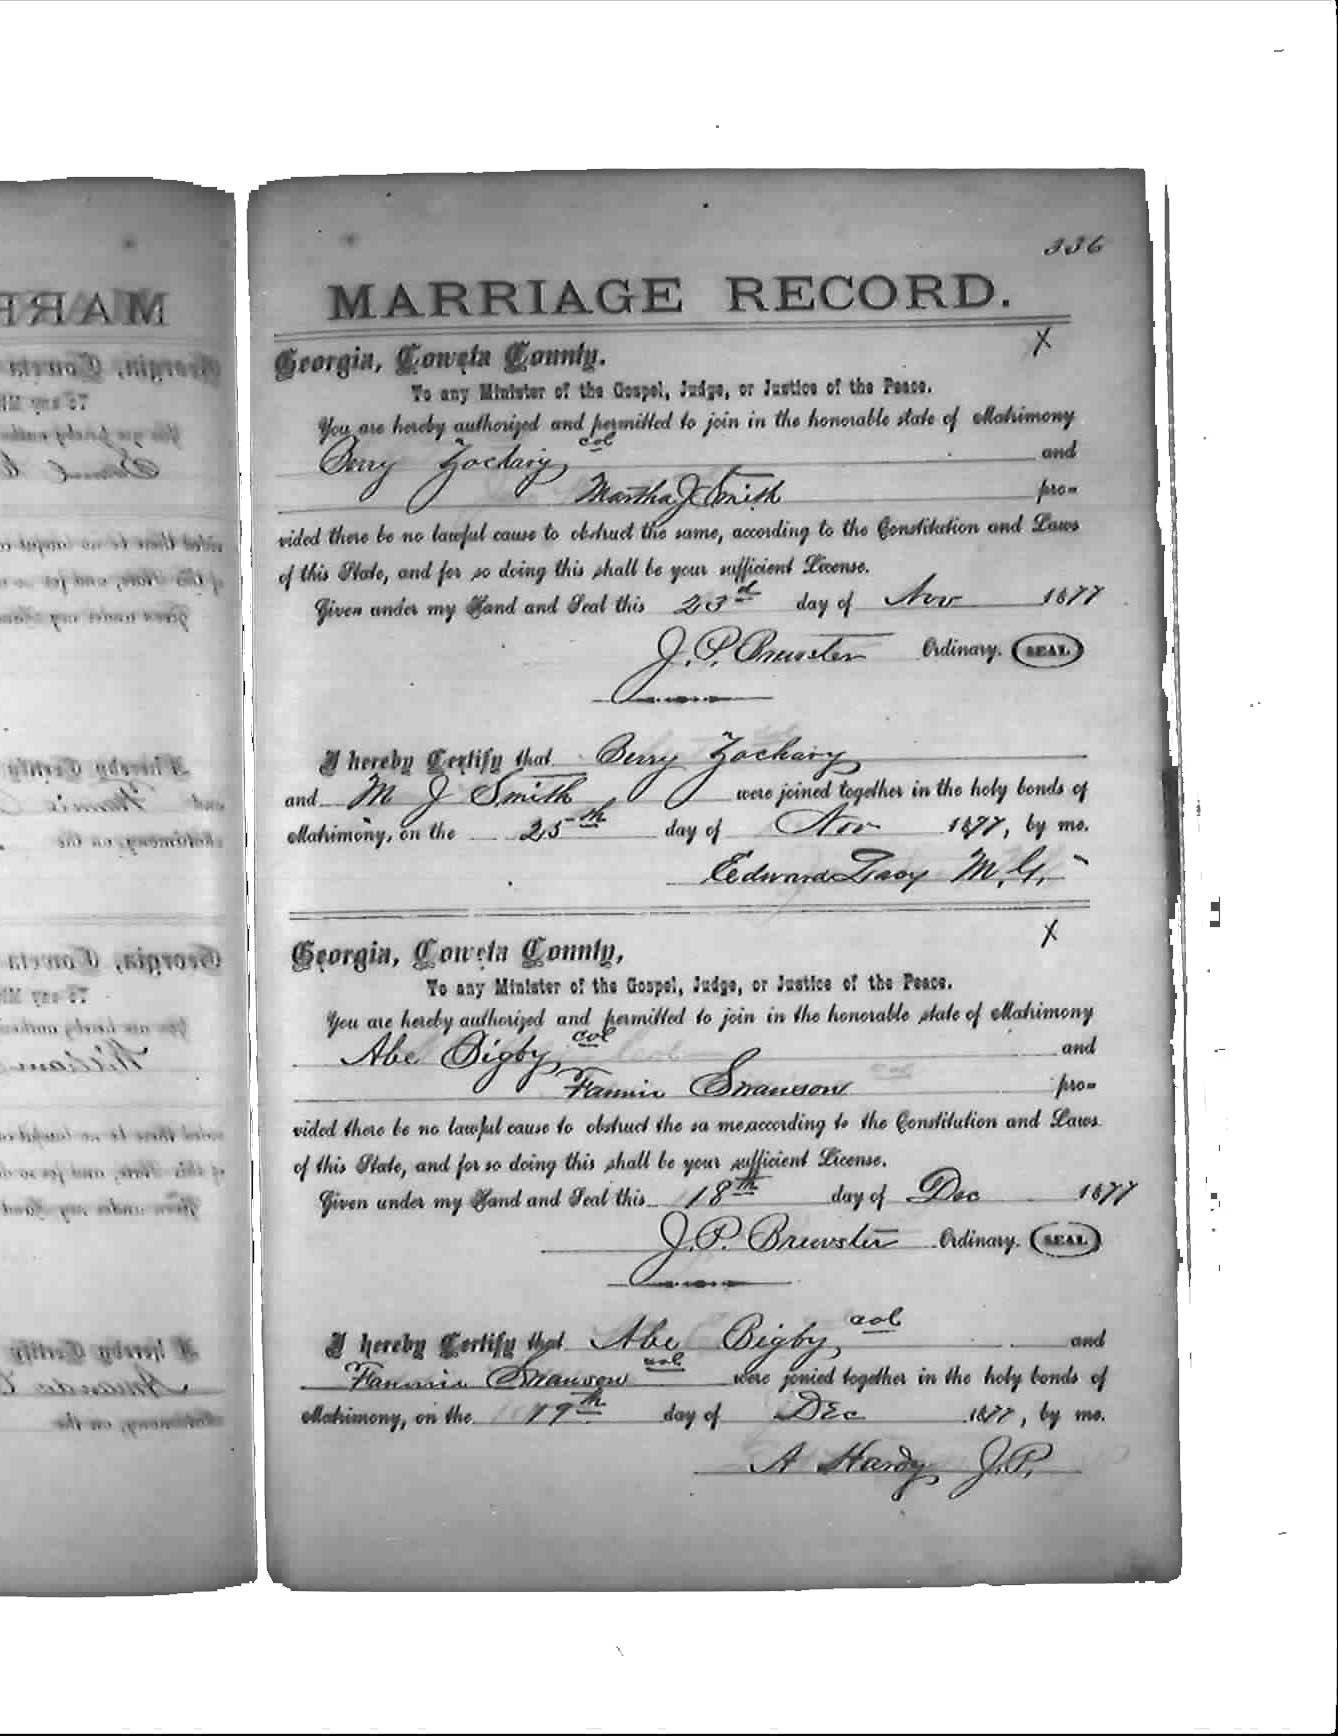 336
MARRIAGE RECORD.
X
Georgia, Coweta County.
To any Minister of the Gospel, Judge, or Justice of the Peace.
You are hereby authorized and permitted to join in the honorable state of Matrimony
Berry Zachary col and
Martha J Smith pro=
vided there be no lawful cause to obstruct the same, according to the Constitution and Laws
of this State, and for so doing this shall be your sufficient License.
Given under my Hand and Seal this 23d day of Nov 1877
J. P. Brewster Ordinary. SEAL
I hereby Certify that Berry Zachary
and M J Smith were joined together in the holy bonds of
Matrimony, on the 25th day of Nov 1877, by me.
Edward M. G.
X
Georgia, Coweta County,
To any Minister of the Gospel, Judge, or Justice of the Peace.
You are hereby authorized and permitted to join in the honorable state of Matrimony
Abe Bigby col and
Fannie Swanson col pro=
vided there be no lawful cause to obstruct the sa me,according to the Constitution and Laws
of this State, and for so doing this shall be your sufficient License.
Given under my Hand and Seal this 18th day of Dec 1877
J. P. Brewster Ordinary. SEAL
I hereby Certify that Abe Bigby col and
Fannie Swanson col were jonied together in the holy bonds of
Matrimony, on the 19th day of Dec 1877, by me.
A Hardy J.P.